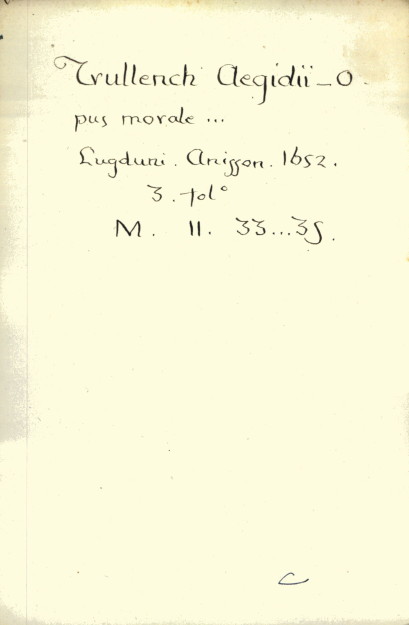 Trullench Aegidii - O
pus morale ...
Lugduni. Anisson. 1652.
3. fol°
M. II. 33...35.
C